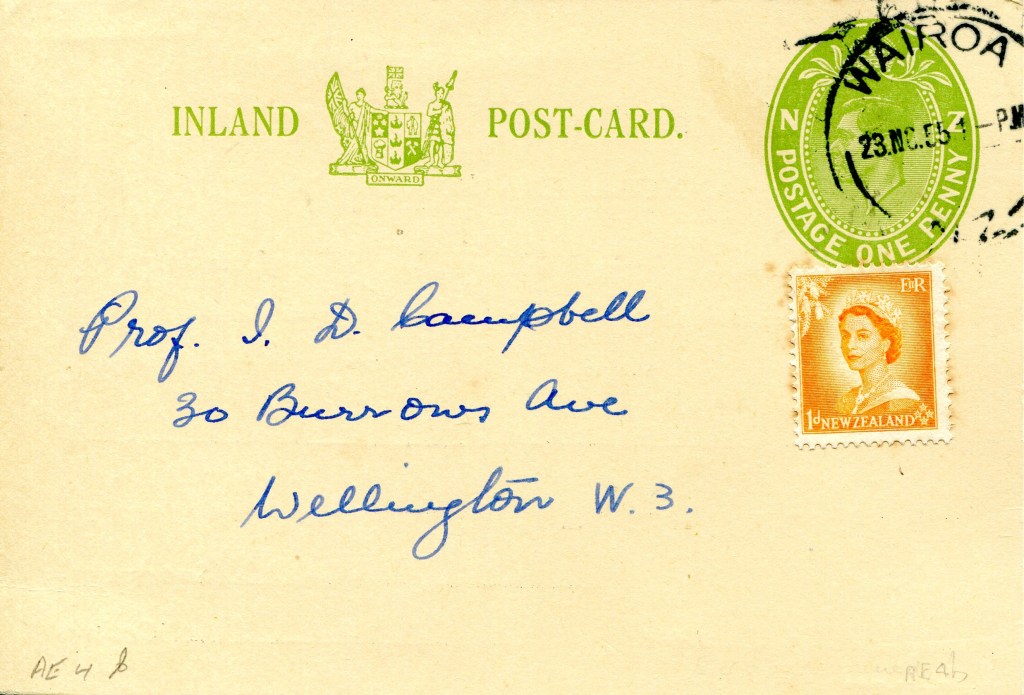 WAIROA
23.NO.55 1-PM
INLAND POST-CARD.
ONWARD
N Z
POSTAGE ONE PENNY
E II R
1d NEW ZEALAND
Prof. I. D. Campbell
30 Burrows Ave
Wellington W. 3.
AE 4 b